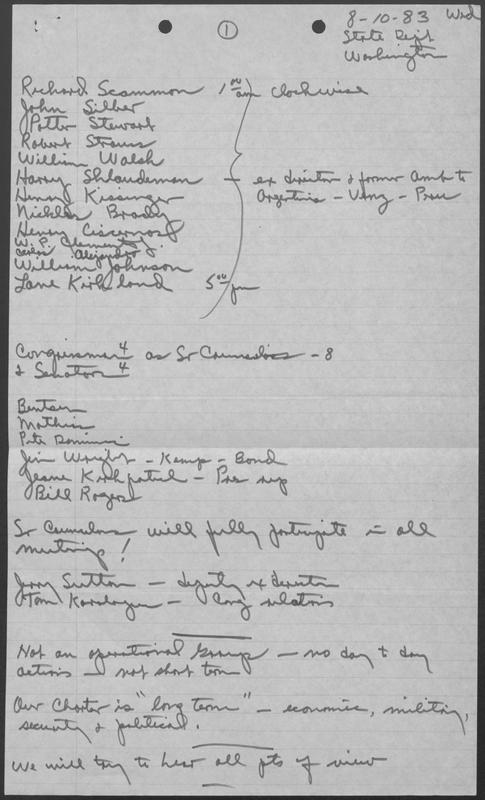 8-10-83 Wed
1
State Dept
Washington
Richard Scammon 1 00 am clockwise
John Silber
Potter Stewart
Robert Straus
William Walsh
Harry Shlaudeman — ex director & former Amb to
Henry Kissinger Argentina - Venz - Peru
Nicholas Brady
Henry Cisneros
W. P. Clements Jr.
Carlos Alejandro
William Johnson
Lane Kirkland 5 00 pm
Congressmen 4 as Sr Counselors - 8
& Senators 4
Bentsen
Mathias
Pete Domenici
Jim Wright - Kemp - Bond
Jeane Kirkpatrick - Pres rep
Bill Rogers
Sr Counselors will fully participate in all
meetings!
Jerry Sutton - deputy ex director
Tom Korologos - Cong relations
Not an operational Group - no day to day
actions - not short term
Our Charter is "long term" - economic, military,
security & political.
We will try to hear all pts of view